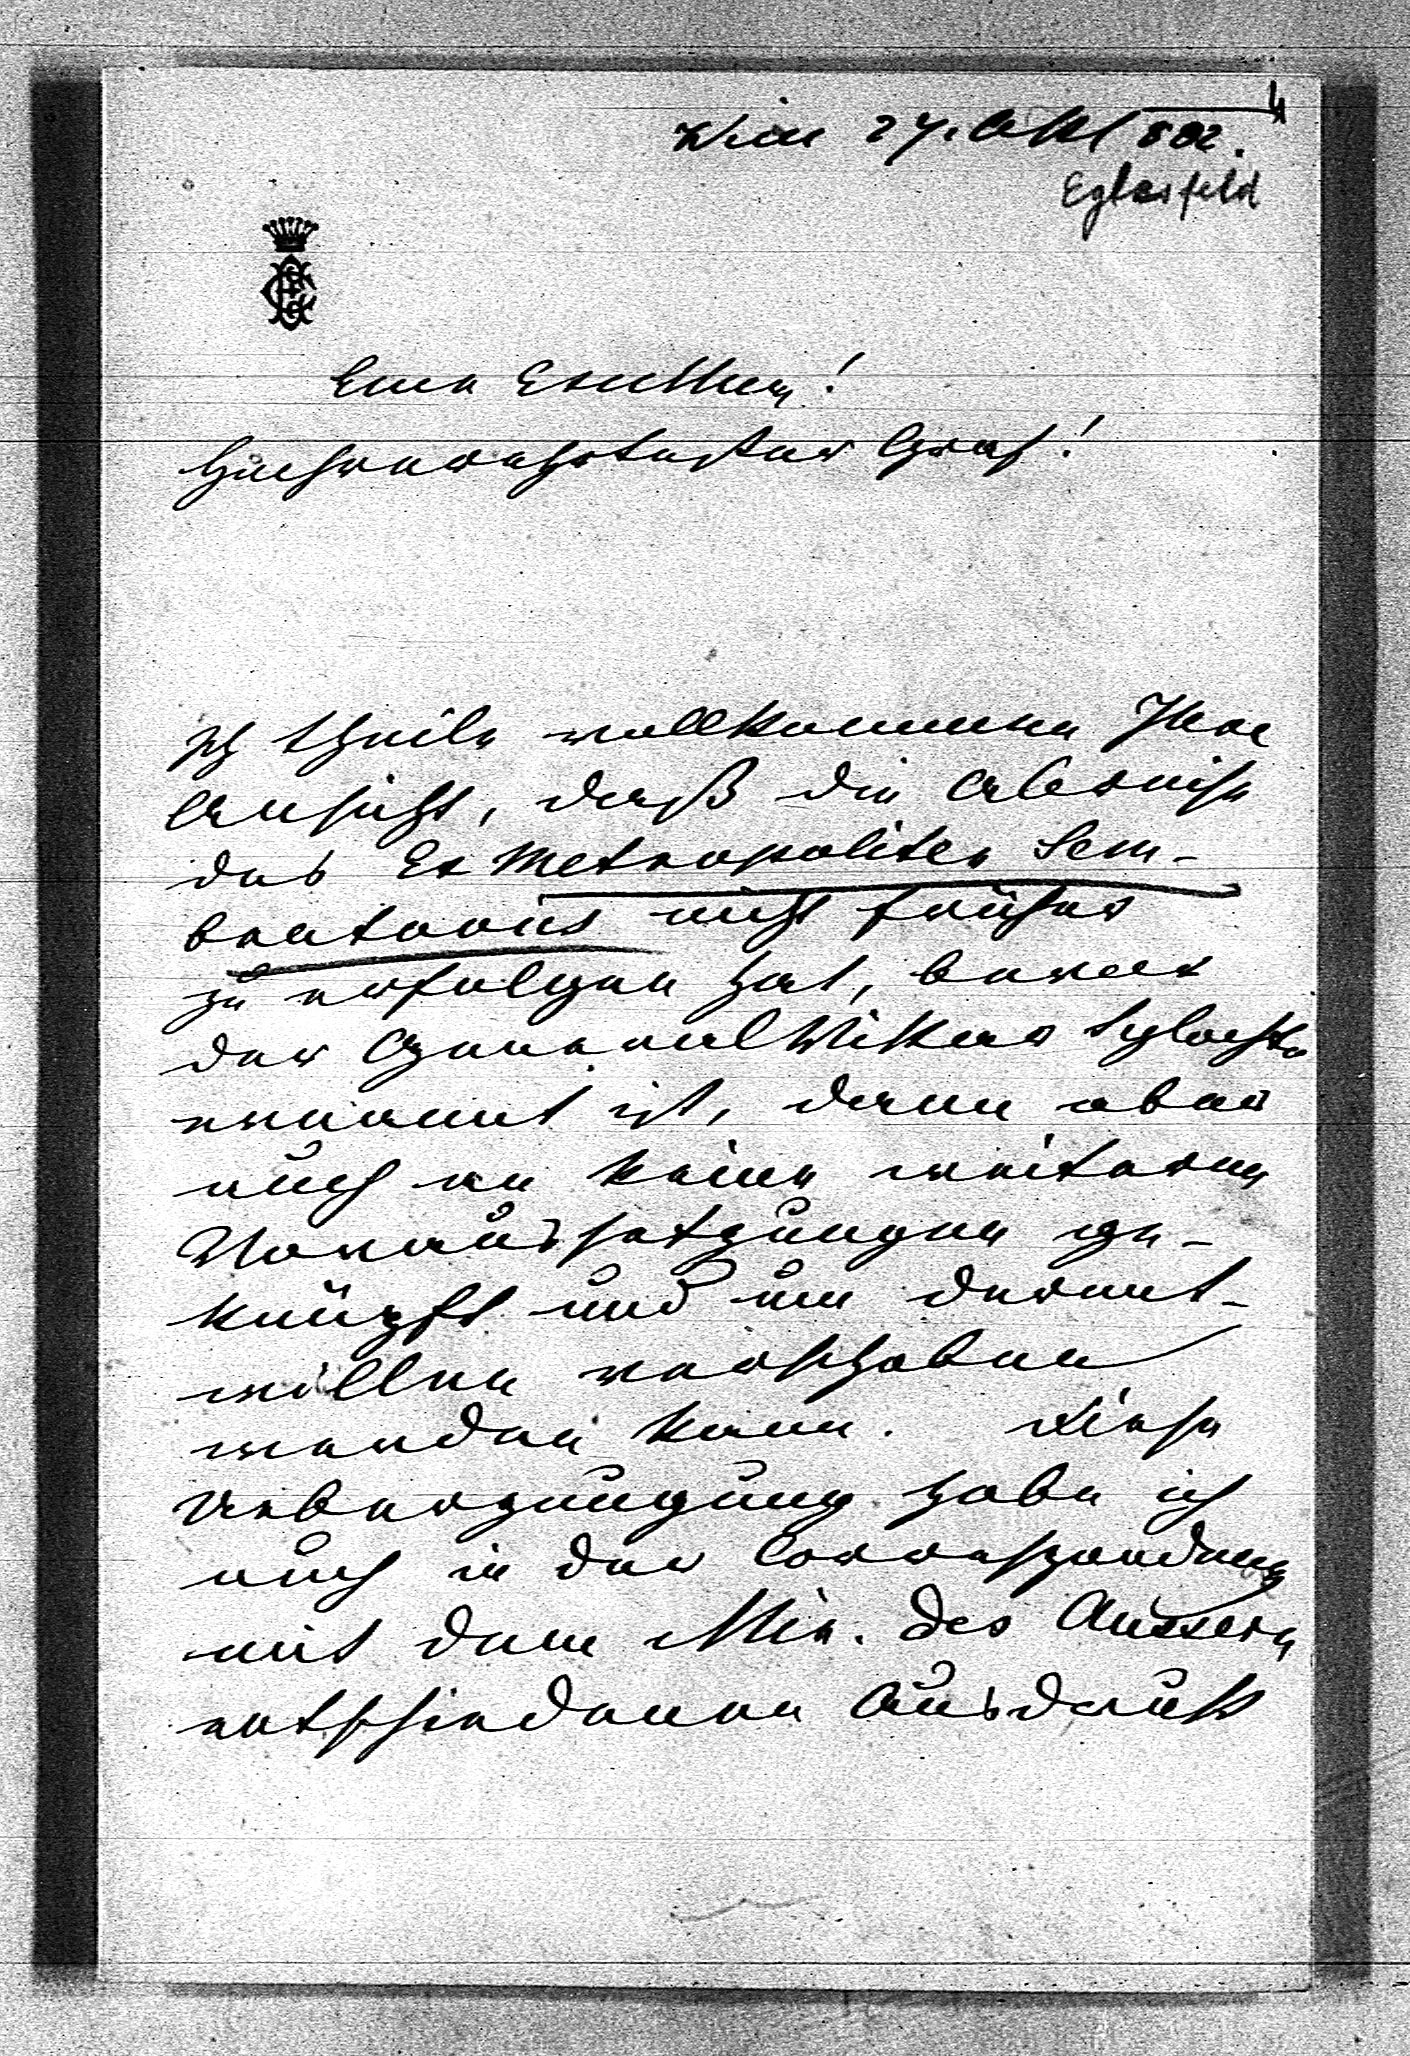 4
Wien 27. Okt 882.
Eglosfeld
Euer Excellenz!
Hochverehrtester Graf!
Ich theile vollkommen Ihre
Ansicht, daß die Abreise
des Ex Metropoliten Sem-
bratovic nicht früher
zu erfolgen hat, bevor
der General Vikar Sylvester
ernannt ist, dann aber
auch an keine weiteren
Voraussetzungen ge-
knüpft und um derent-
willen verschoben
werden kann. Diese
Ueberzeugung habe ich
auch in der Correspondenz
mit dem Min. des Aussern
entschiedenen Ausdruck